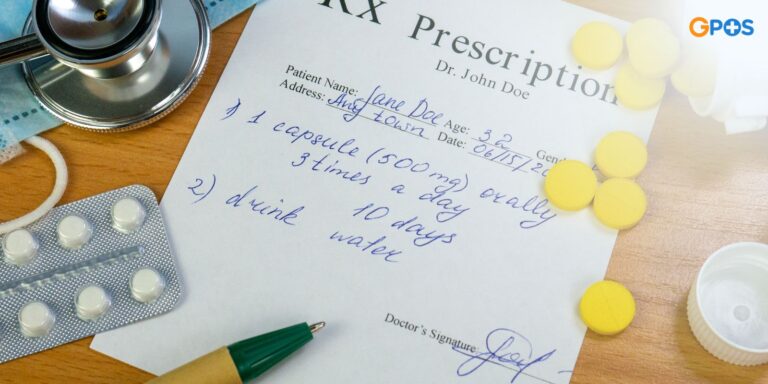 GPOS
RX Prescription
Dr. John Doe
Patient Name: Jane Doe Age: 32 Gend
Address: Any town Date: 06/15/20
1) 1 capsule (500 mg) orally
3 times a day
10 days
2) drink water
Doctor's Signature